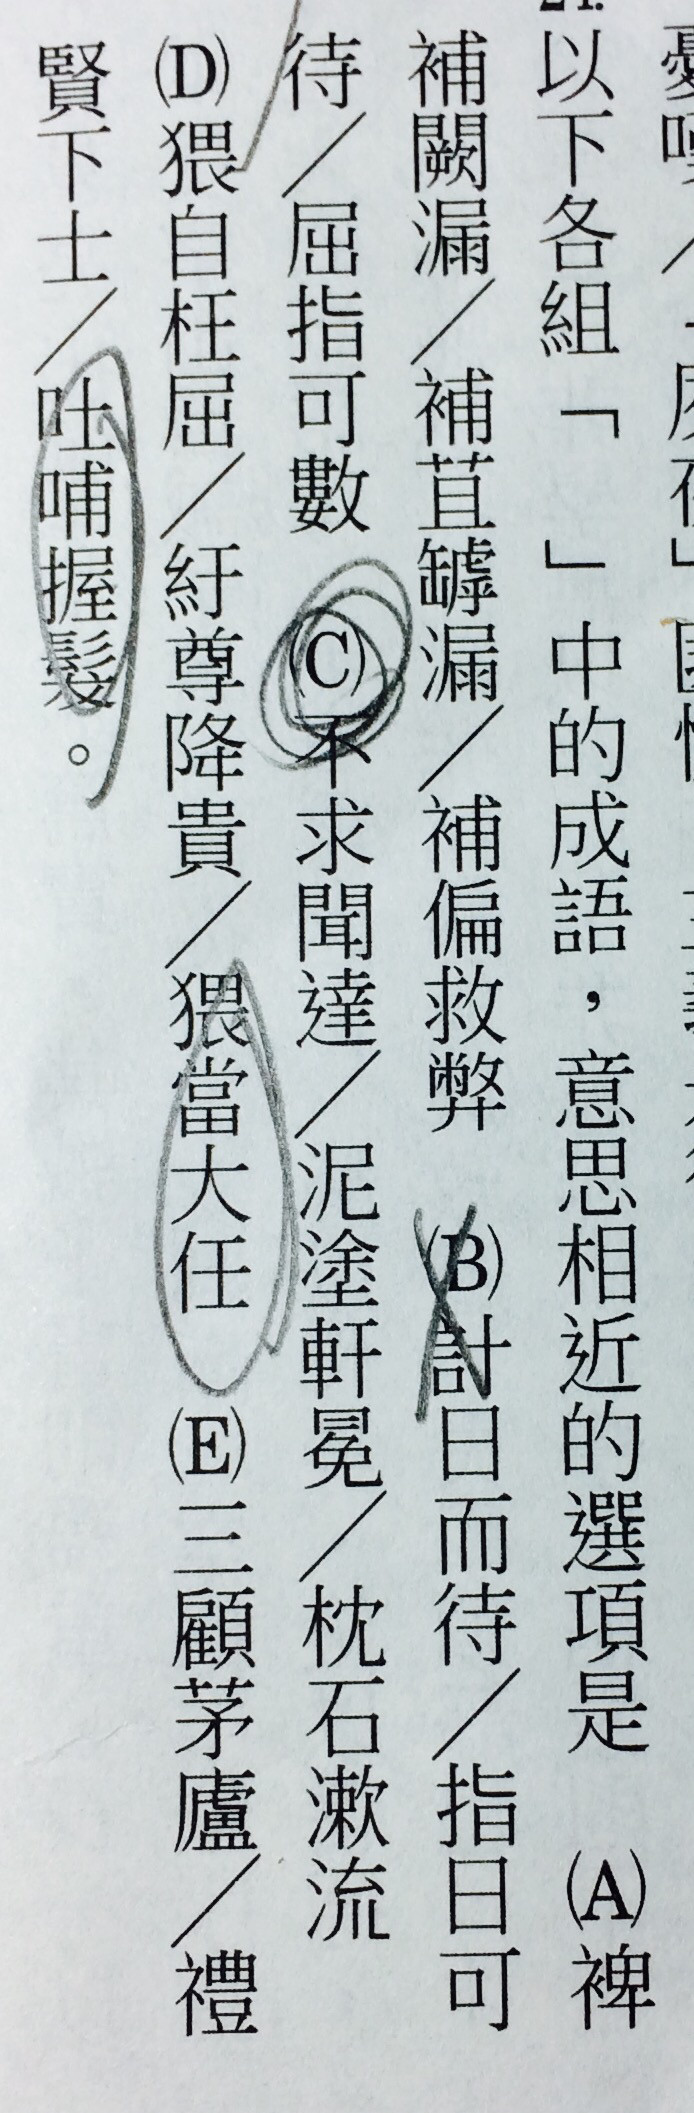 24.
以下各組「　」中的成語，意思相近的選項是　(A)裨
補闕漏／補苴罅漏／補偏救弊　(B)計日而待／指日可
待／屈指可數　(C)不求聞達／泥塗軒冕／枕石漱流
(D)猥自枉屈／紆尊降貴／猥當大任　(E)三顧茅廬／禮
賢下士／吐哺握髮。